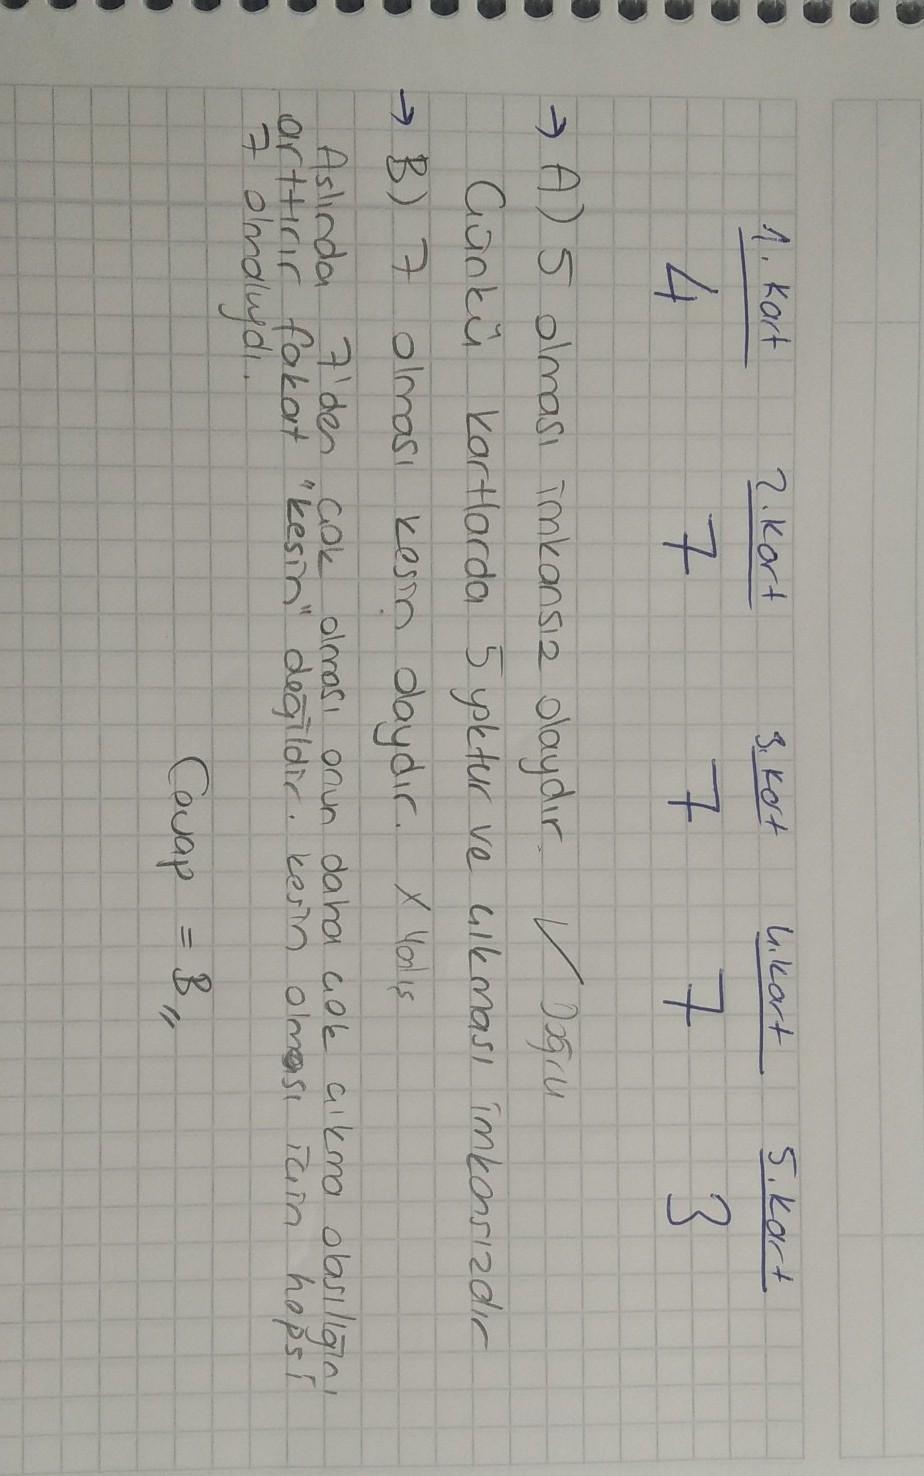 1. kart 2. kart 3. kart 4. kart 5. kart
4 7 7 7 3
→ A) 5 olması imkansız olaydır. ✓ Doğru
Çünkü kartlarda 5 yoktur ve çıkması imkansızdır
→ B) 7 olması kesin olaydır. X Yanlış
Aslında 7'den çok olması onun daha çok çıkma olasılığını
arttırır fakat "kesin" değildir. Kesin olması için hepsi
7 olmalıydı.
Cevap = B,,